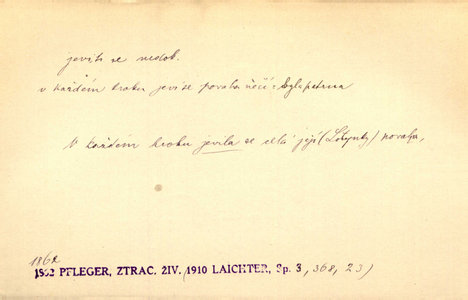 jeviti se nedok.
v každém kroku jeví se povaha něčí = byla patrna
V každém kroku jevila se celá její (Lotynky) povaha,
1862
1862 PFLEGER, ZTRAC. ŽIV. (1910 LAICHTER, Sp. 3, 368, 23)